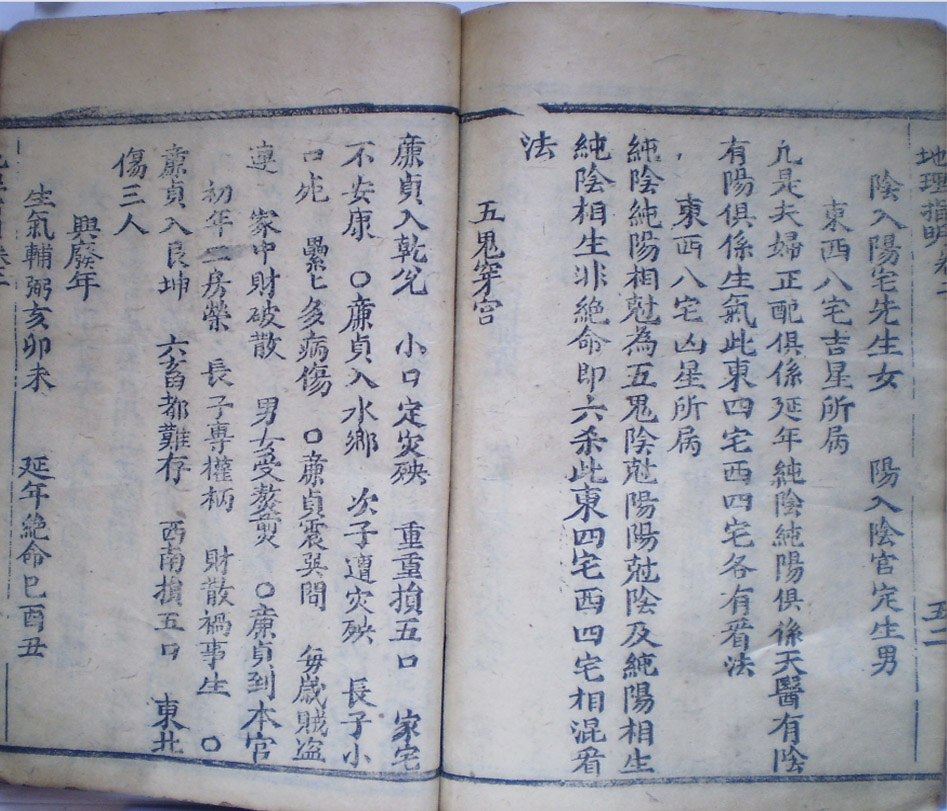 地理指明卷二
五二
陰入陽宅先生女 陽入陰宫定生男
東西八宅吉星所屙
凢是夫婦正配俱係延年純陰純陽俱係天醫有陰
有陽俱係生氣此東四宅西四宅各有看法
東西八宅凶星所屙
純陰純陽相尅為五鬼陰尅陽陽尅陰及純陽相生
純陰相生非絕命即六杀此東四宅西四宅相混看
法
五鬼穿宫
廉貞入乾兊 小口定灾殃 重重損五口 家宅
不安康 〇廉貞入水鄉 次子遭灾殃 長子小
口死 纍匕多病傷 〇廉貞震巽間 毎歲賊盜
連 家中財破散 男女受熬煎 〇廉貞到本宫
初年二房榮 長子專權柄 財散禍事生 〇
廉貞入艮坤 六畜都難存 西南損五口 東北
傷三人
興廢年
生氣輔弼亥卯未 延年絕命巳酉丑